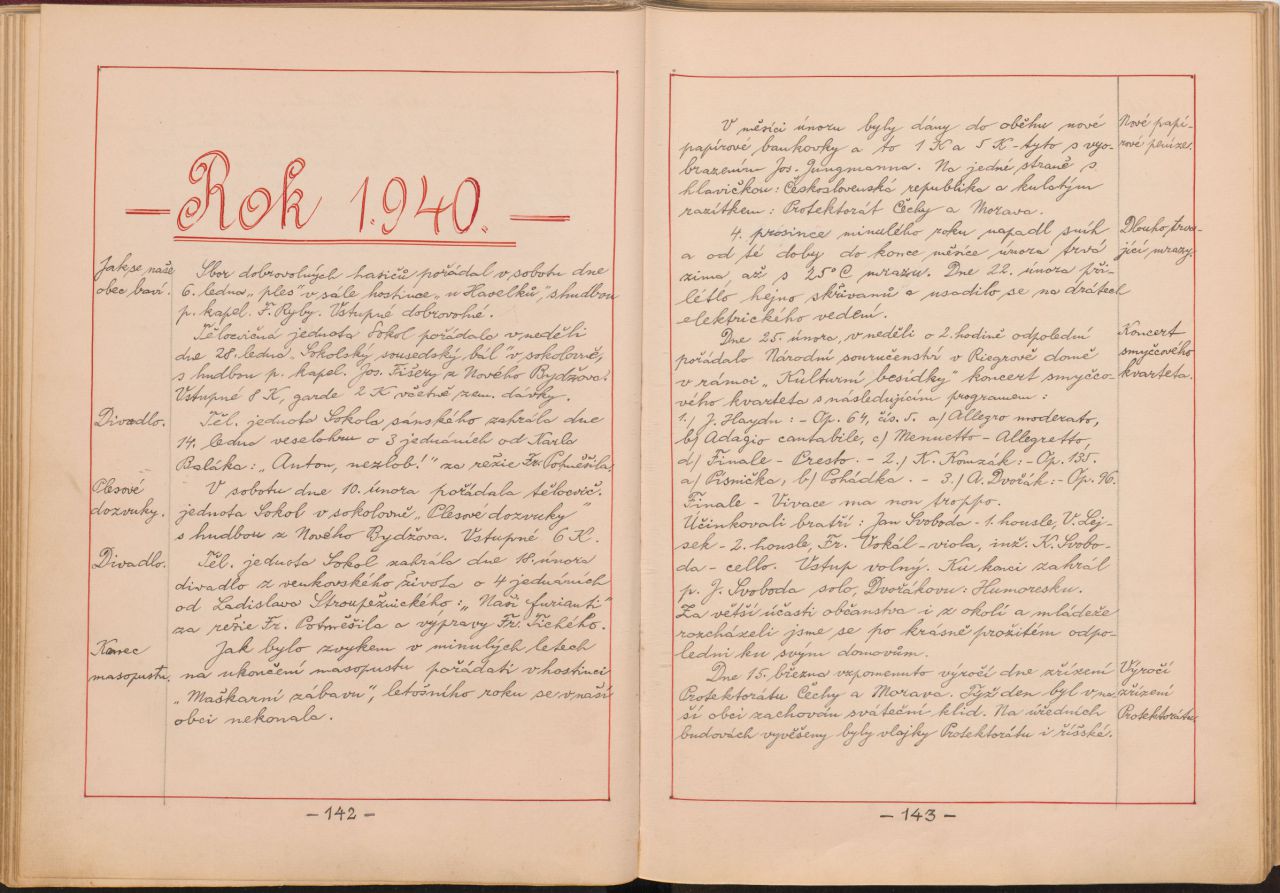 — Rok 1.940. —
Jak se naše
obec baví.
Sbor dobrovolných hasičů pořádal v sobotu dne
6. ledna „ples" v sále hostince „u Havelků", s hudbou
p. kapel. F. Ryby. Vstupné dobrovolné.
Tělocvičná jednota Sokol pořádala v neděli
dne 28. ledna „Sokolský sousedský bál" v sokolovně,
s hudbou p. kapel. Jos. Fišery z Nového Bydžova.
Vstupné 8 K, garde 2 K včetně zem. dávky.
Divadlo.
Těl. jednota Sokola sánského zahrála dne
14. ledna veselohru o 3 jednáních od Karla
Baláka: „Anton, nezlob!" za režie Fr. Potměšila.
Plesové
dozvuky.
V sobotu dne 10. února pořádala tělocvič.
jednota Sokol v sokolovně „Plesové dozvuky"
s hudbou z Nového Bydžova. Vstupné 6 K.
Divadlo.
Těl. jednota Sokol zahrála dne 18. února
divadlo z venkovského života o 4 jednáních
od Ladislava Stroupežnického: „Naši furianti"
za režie Fr. Potměšila a výpravy Fr. Tichého.
Konec
masopustu.
Jak bylo zvykem v minulých letech
na ukončení masopustu pořádati v hostinci
„Maškarní zábavu", letošního roku se v naší
obci nekonala.
– 142 –
Nové papí-
rové peníze.
V měsíci únoru byly dány do oběhu nové
papírové bankovky a to 1 K a 5 K – tyto s vyo-
brazením Jos. Jungmanna. Na jedné straně s
hlavičkou: Československá republika a kulatým
razítkem: Protektorát Čechy a Morava.
Dlouho trva-
jící mrazy.
4. prosince minulého roku napadl sníh
a od té doby do konce měsíce února trvá
zima, až s 25° C mrazu. Dne 22. února při-
létlo hejno skřivanů a usadilo se na drátech
elektrického vedení.
Koncert
smyčcového
kvarteta.
Dne 25. února, v neděli o 2. hodině odpolední
pořádalo Národní souručenství v Riegrově domě
v rámci „Kulturní besídky" koncert smyčco-
vého kvarteta s následujícím programem:
1., J. Haydn: – Op. 64, čís. 5. a) Allegro moderato,
b) Adagio cantabile, c) Menuetto – Allegretto,
d) Finale – Presto. – 2.) K. Komzák: – Op. 135.
a) Písnička, b) Pohádka. – 3.) A. Dvořák: – Op. 96.
Finale – Vivace ma non troppo.
Účinkovali bratří: Jan Svoboda – 1. housle, V. Lej-
sek – 2. housle, Fr. Vokál – viola, inž. K. Svobo-
da – cello. Vstup volný. Ku konci zahrál
p. J. Svoboda solo, Dvořákovu: Humoresku.
Za větší účasti občanstva i z okolí a mládeže
rozcházeli jsme se po krásně prožitém odpo-
ledni ku svým domovům.
Výročí
zřízení
Protektorátu.
Dne 15. března vzpomenuto výročí dne zřízení
Protektorátu Čechy a Morava. Týž den byl v na-
ší obci zachován sváteční klid. Na úředních
budovách vyvěšeny byly vlajky Protektorátu i říšské.
– 143 –